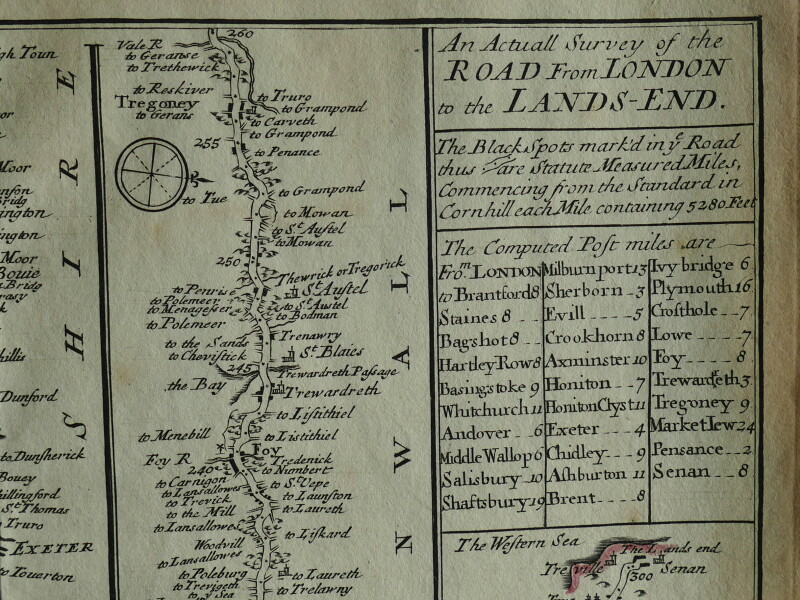 gh Toun
Moor
Bridg
ington
ington
Moor
Bouie
Bridg
hillis
Dunford
to Dunsherick
Bouey
hillingford
St Thomas
Truro
EXETER
to Touerton
SHIRE
260
Vale R
to Geranse
to Trethewick
to Reskiver
to Truro
Tregoney
to Grampond
to Gerans
to Carveth
to Grampond
255
to Penance
to Grampond
to Tue
to Mowan
to St Austel
to Mowan
250
Thewrick or Tregorick
to Penris
St Austel
to Polemeer
to St Austel
to Menagesser
to Bodman
to Polemeer
Trenawry
to the Sands
St Blaies
to Chevistick
245
Trewardreth Passage
the Bay
Trewardreth
to Listithiel
to Menebill
to Listithiel
Foy R
Foy
Tredenick
240
to Nionbert
to Carnigon
to St Vepe
to Lansallowes
to Launston
to Trevick
to Laureth
to the Mill
to Lansallowes
to Liskard
Woodvill
to Lansallowes
to Poleburg
to Laureth
to Trevigeth
to Trelawny
to ye Sea
NWALL
An Actuall Survey of the
ROAD From LONDON
to the LANDS-END.
The Black Spots mark'd in ye Road
thus are Statute Measured Miles,
Commencing from the Standard in
Cornhill each Mile containing 5280 Feet
The Computed Post miles are
From LONDON
to Brantford 8
Staines 8
Bagshot 8
Hartley Row 8
Basingstoke 9
Whitchurch 11
Andover 6
Middle Wallop 6
Salisbury 10
Shaftsbury 19
Milburn port 13
Sherborn 3
Evill 5
Crookhorn 8
Axminster 10
Honiton 7
Honiton Clyst 11
Exeter 4
Chidley 9
Ashburton 11
Brent 8
Ivy bridge 6
Plymouth 16
Crosthole 7
Lowe 7
Foy 8
Trewardeth 3
Tregoney 9
Market Jew 24
Pensance 2
Senan 8
The Western Sea
The Lands end
Tresville
300
Senan